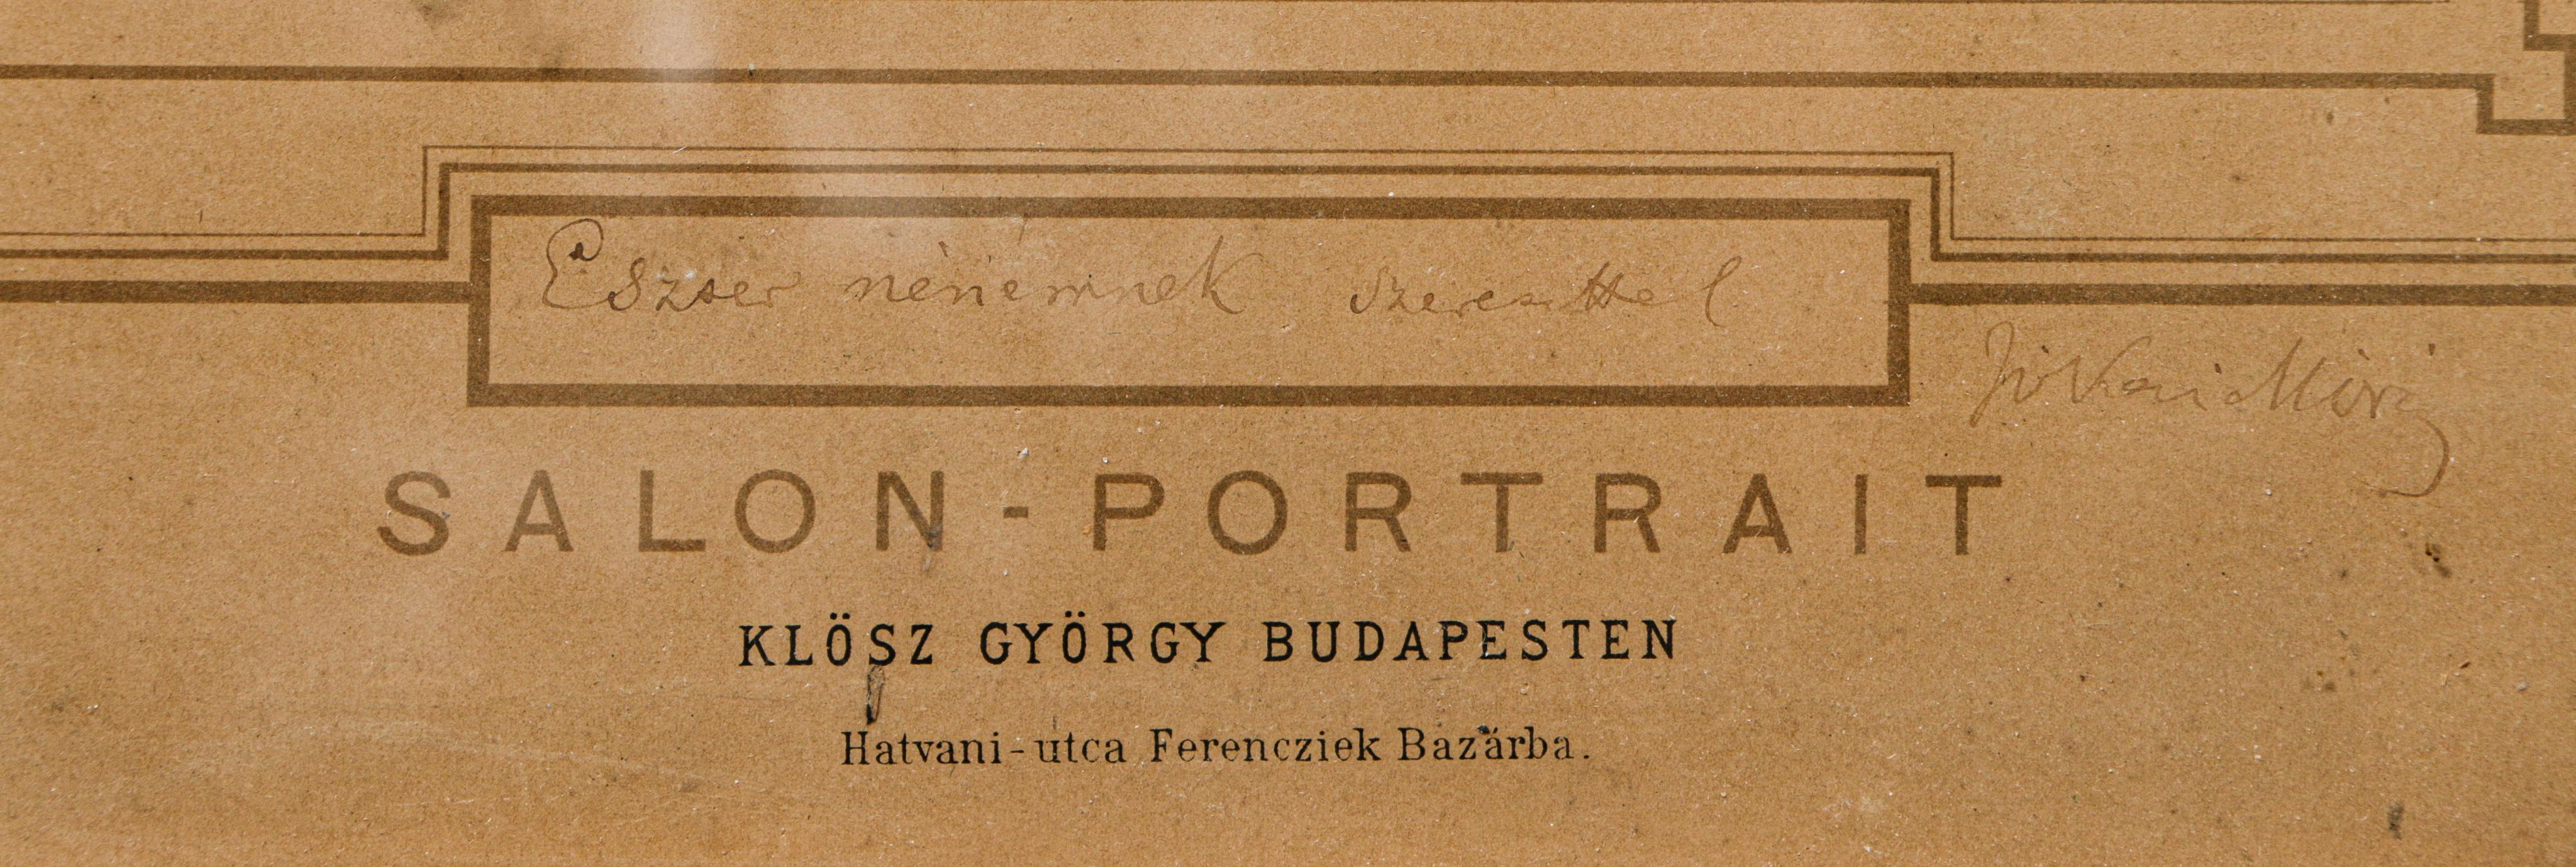 Eszter nénémnek szeretettel
Jókai Móri
SALON-PORTRAIT
KLÖSZ GYÖRGY BUDAPESTEN
Hatvani-utca Ferencziek Bazárba.